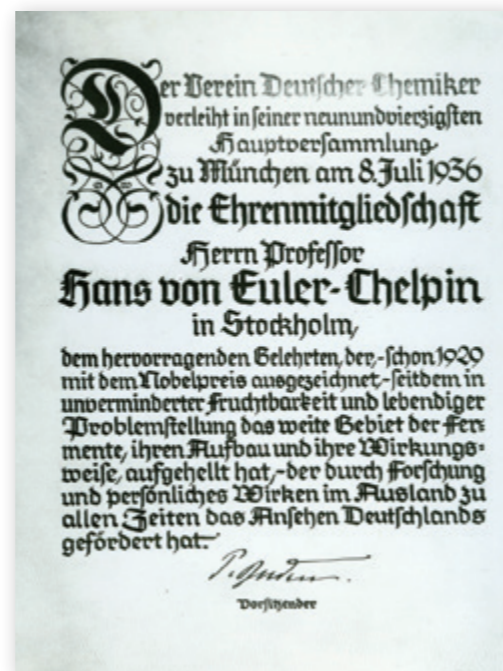 Der Verein Deutscher Chemiker
verleiht in seiner neunundvierzigsten
Hauptversammlung
zu München am 8. Juli 1936
die Ehrenmitgliedschaft
Herrn Professor
Hans von Euler-Chelpin
in Stockholm,
dem hervorragenden Gelehrten, der,-schon 1929
mit dem Nobelpreis ausgezeichnet,-seitdem in
unverminderter Fruchtbarkeit und lebendiger
Problemstellung das weite Gebiet der Fer=
mente, ihren Aufbau und ihre Wirkungs=
weise, aufgehellt hat,-der durch Forschung
und persönliches Wirken im Ausland zu
allen Zeiten das Ansehen Deutschlands
gefördert hat.
Vorsitzender